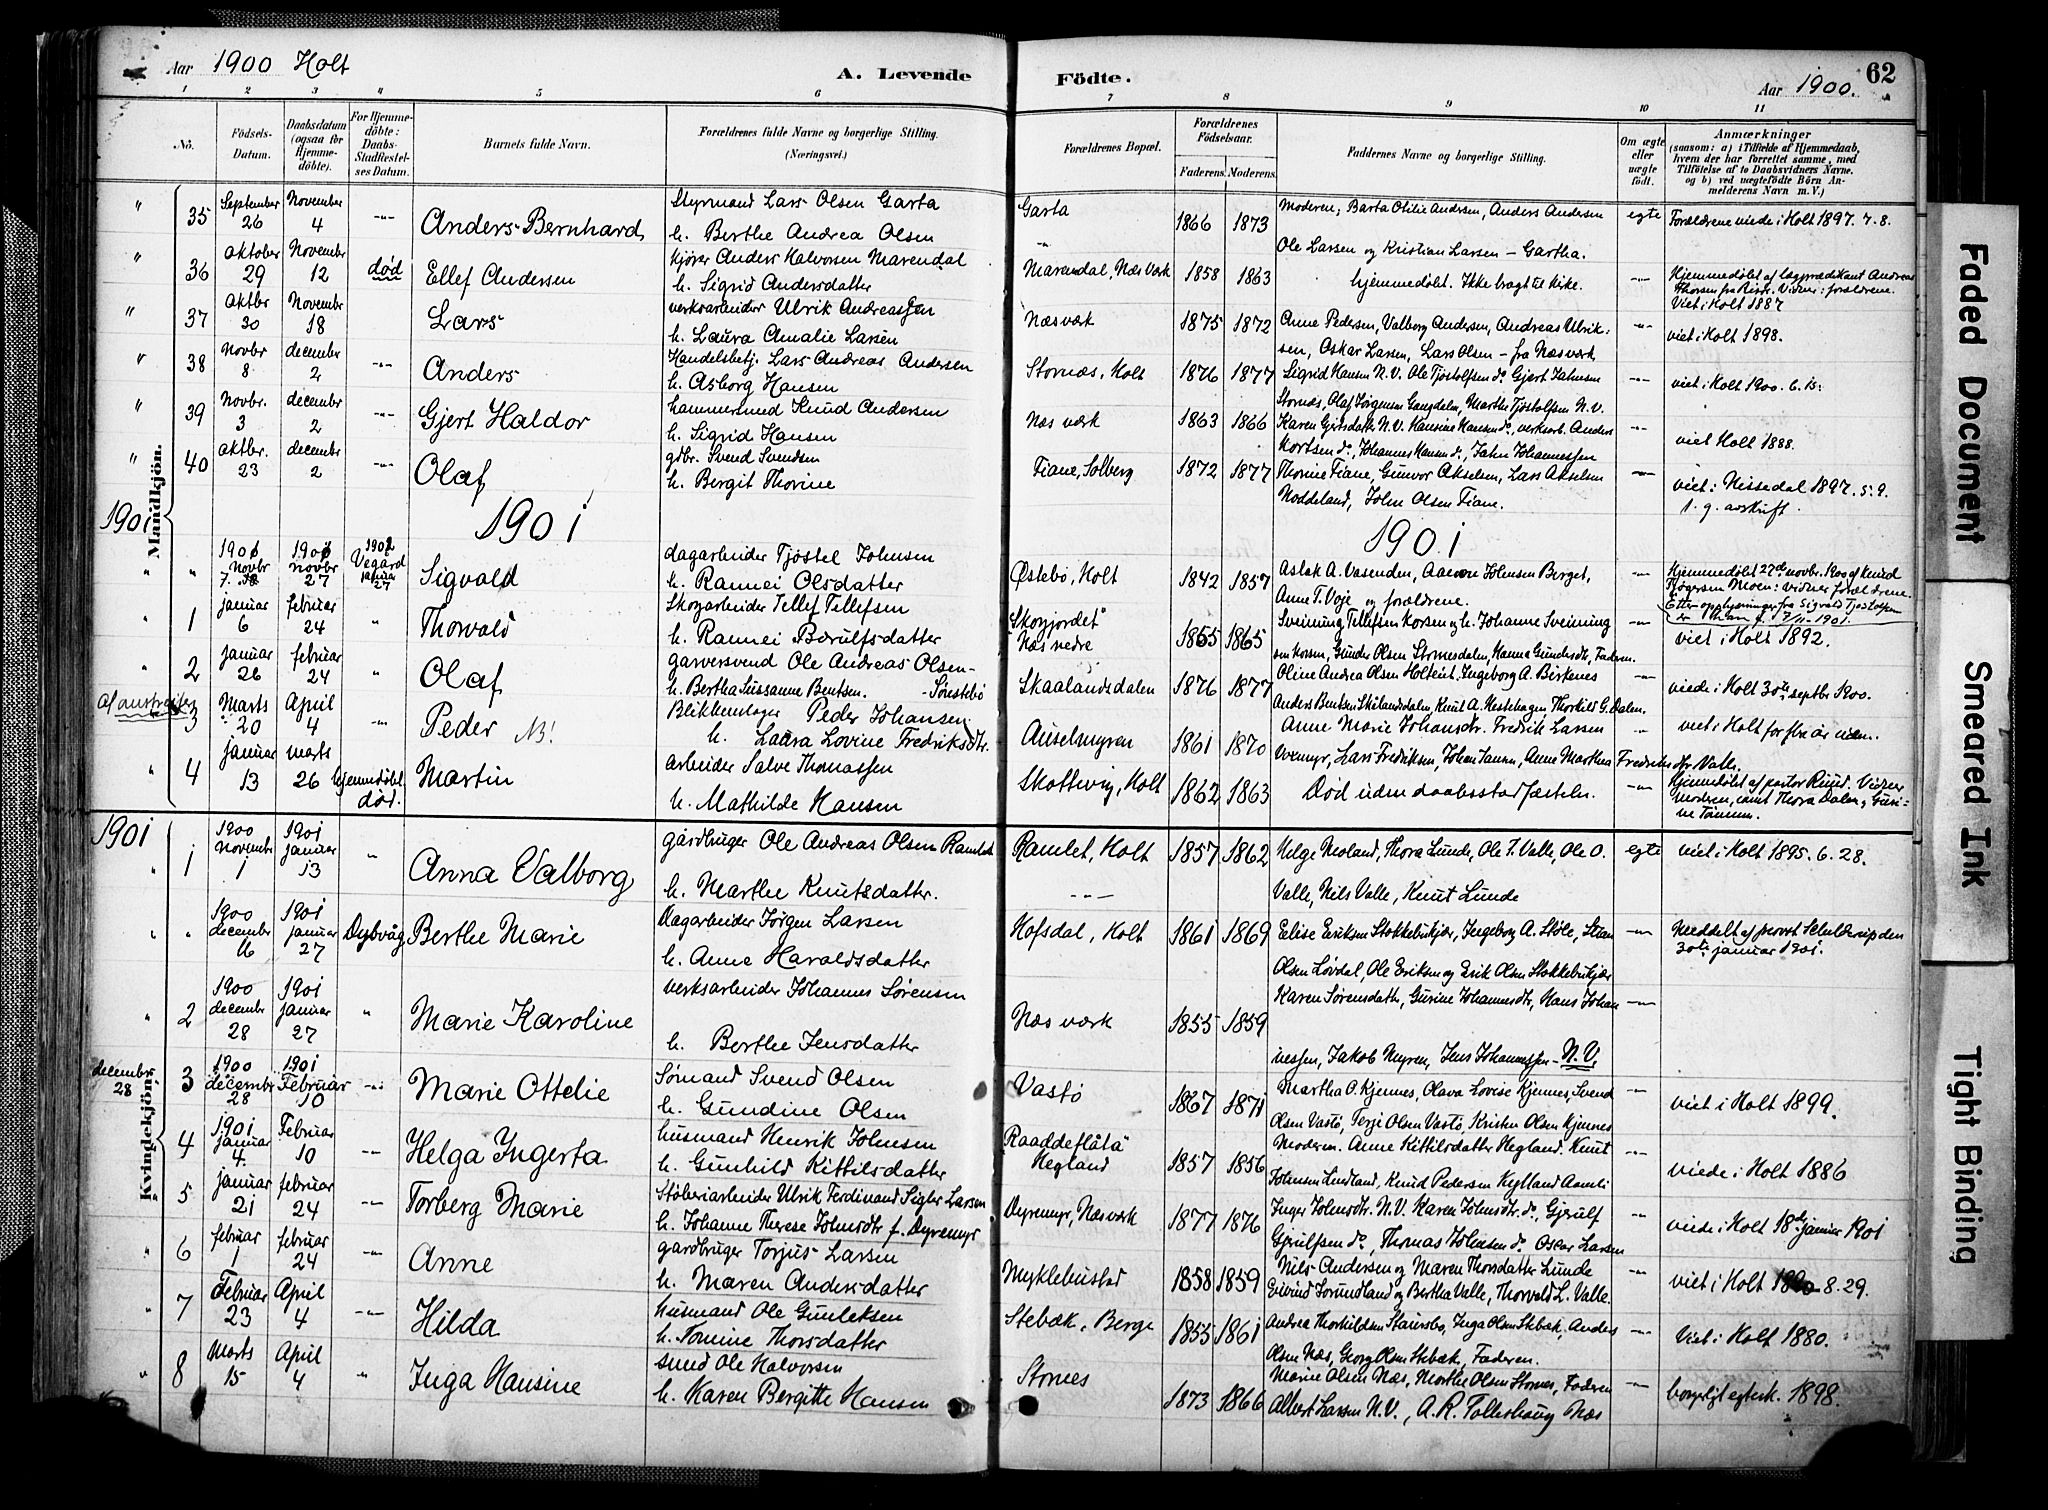 Aar 1900 Holt
A. Levende Födte.
Aar 1900. 62
1 2 3 4 5 6 7 8 9 10 11
No.
Födsels-Datum.
Daabsdatum (ogsaa for Hjemme-döbte).
For Hjemme-döbte: Daabs-Stadfæstel-ses Datum.
Barnets fulde Navn.
Forældrenes fulde Navne og borgerlige Stilling. (Næringsvei.)
Forældrenes Bopæl.
Forældrenes Födselsaar.
Faderens. Moderens.
Faddernes Navne og borgerlige Stilling.
Om ægte eller uægte födt.
Anmærkninger
(saasom: a) i Tilfælde af Hjemmedaab, hvem der har forrettet samme, med Tilföielse af to Daabsvidners Navne. og b) ved uægtefödte Börn An-melderens Navn m. V.)
Mandkjön.
" 35 September 26 November 4 -"- Anders Bernhard Styrmand Lars Olsen Garta
h. Berthe Andrea Olsen
Garta 1866 1873 Moderen, Barta Otilie Andersen, Anders Andersen
Ole Larsen og Kristian Larsen - Gartha.
egte Forældrene viede i Holt 1897. 7. 8.
" 36 oktober 29 Novembr 12 død Ellef Andersen kjører Anders Halvorsen Marendal
h. Sigrid Andersdatter
Marendal, Næs Værk 1858 1863 hjemmedøbt. Ikke bragt til kirke.
-"- Hjemmedøbt af lægprædikant Andreas
Thorsen fra Risør. Vidner: forældrene.
Viet i Holt 1887
" 37 oktbr 30 Novembr 18 Lars verksarbeider Ulrik Andreassen
h. Laura Amalie Larsen
Næs værk 1875 1872 Anne Pedersen, Valborg Andersen, Andreas Ulrik-
sen, Oskar Larsen, Lars Olsen - fra Næs værk
-"- viet i Holt 1898.
" 38 Novbr 8 december 2 -"- Anders Handelsbetj. Lars Andreas Andersen
h. Asborg Hansen
Stornæs, Holt 1876 1877 Sigrid Hansen N.V. Ole Tjøstolfsen do Gjert Jahnsen
Stornæs, Olaf Jørgensen Gangdalen, Marthe Tjøstolfsen N.V.
-"- viet i Holt 1900. 6. 15.
" 39 Novbr. 3 december 2 -"- Gjert Haldor hammersmed Knud Andersen
h. Sigrid Hansen
Næs værk 1863 1866 Karen Gjertsdatr N.V. Hansine Hansen do, verksarb. Anders
Kortsen do, Johannes Hansen do, Jahn Johannessen
-"- viet Holt 1888.
" 40 oktbr. 23 december 2 -"- Olaf gdbr. Svend Svendsen
h. Bergit Thorine
Fiane, Solberg 1872 1877 Thorine Fiane, Gunvor Akselsen, Lars Akselsen
Noddeland, John Olsen Fiane.
-"- viet i Nissedal 1897. 5. 9.
1. g. avskrift.
1901 1901 1901
" " 1901 Novbr 7. 1900 novbr 27 1901 Vegård januar 27 Sigvald dagarbeider Tjøstel Johnsen
h. Rannei Olsdatter
Østebø, Holt 1842 1857 Aslak A. Vasenden, Aanon Johnsen Berget,
Anne T. Voje og forældrene.
-"- Hjemmedøbt 27de novbr. 1900 af Knud
Tjøgersen Moen: vidner forældrene.
Efter opplysninger fra Sigvald Tjøstolfsen
er han f. 7/11-1901.
" 1 januar 6 februar 24 " Thorvald Skogarbeider Tellef Tellefsen
h. Rannei Bærulfsdatter
"Skogjordet" Næs nedre 1865 1865 Sveinung Tellefsen Korsen og h. Johanne Sveinung
sen Korsen, Gunder Olsen Stornesdalen, Hanna Gundersdtr, Faderen.
-"- viet i Holt 1892.
" 2 januar 26 februar 24 " Olaf garversvend Ole Andreas Olsen -
h. Bertha Sussanne Bentsen. - Sørestebø
Skaalandsdalen 1876 1877 Oline Andrea Olsen Holteint. Ingeborg A. Birkenes
Anders Bentsen Skålandsdalen, Knut A. Hestehagen Thorkild G. Dalen.
-"- viede i Holt 30te septbr 1900.
3 Marts 20 April 4 -"- Peder N3! Blikkenslager Peder Johansen
h. Laura Lovine Fredriksdtr.
Auselmyren 1861 1870 Anne Marie Johansdtr. Fredrik Larsen
Svemyr, Lars Fredriksen, Johan Jansen, Anne Martha Fredriksdtr Valle.
" viet i Holt for flre år siden.
" 4 januar 13 marts 26 hjemmedøbt død. Martin arbeider Salve Thomassen
h. Mathilde Hansen
Skottevig, Holt 1862 1863 Død uden daabsstadfæstelse. -"-
Hjemmedøbt af pastor Ruud. Vidner
Moderen, samt Thora Dalen, Guri-
ne Tømmer.
Kvindekjön.
1901
" 1 1900 novembr 1 1901 januar 13 " Anna Valborg gårdbruger Ole Andreas Olsen Ramlet
h. Marthe Knutsdatter.
Ramlet, Holt 1857 1862 Helge Moland, Thora Lunde, Ole T. Valle, Ole O.
Valle, Nils Valle, Knut Lunde
egte viet i Holt 1895. 6. 28.
" " 1900 december 16 1901 januar 27 Dybvåg Berthe Marie Dagarbeider Jørgen Larsen
h. Anne Haraldsdatter
Hofsdal, Holt 1861 1869 Elise Eriksen Stokkebukjær, Ingeborg A. Støle, Stian
Olsen Løvdal, Ole Eriksen og Erik Olsen Stokkebukjær
-"- Meddelt af provst Schelderup den
30te januar 1901.
" 2 1900 december 28 1901 januar 27 " Marie Karoline verksarbeider Johannes Sørensen
h. Berthe Jensdatter
Næs værk 1855 1859 Karen Sørensdatter, Gurine Johannesdtr, Hans Johan
nessen, Jakob Myren, Jens Johannessen - N.V. -"-
decembr 28 3 1900 december 28 1901 Februar 10 -"- Marie Ottelie Sømand Svend Olsen
h. Gundine Olsen
Vastø 1867 1871 Martha O. Kjennes, Olava Lovise Kjennes, Svend
Olsen Vastø, Terje Olsen Vastø, Kristen Olsen Kjennes
-"- viet i Holt 1899.
4 1901 januar 4. Februar 10 -"- Helga Ingerta husmand Henrik Johnsen
h. Gunhild Kittilsdatter
"Raaddeflåta" Hegland 1857 1856 Moderen. Anne Kittilsdatter Hegland. Knut
Johnsen Lindland, Knud Pedersen Hegland Aamli
-"- viede i Holt 1886
5 januar 21 februar 24 -"- Torberg Marie Støberiarbeider Ulrik Ferdinand Sigler Larsen
h. Johanne Therese Johnsdtr f. Dyremyr
Dyremyr, Næsværk 1877 1876 Inger Johnsdtr. N.V. Karen Johnsdtr. do, Gjerulf
Gjerulfsen do, Thomas Johnsen do. Oscar Larsen
-"- viede i Holt 18de januar 1901
" 6 februar 1 februar 24 -"- Anne gardbruger Torjus Larsen
h. Maren Andersdatter
Myklebustad 1858 1859 Nils Andersen og Maren Thorsdatter Lunde
Eivind Lorundland og Bertha Valle, Thorvald L. Valle.
-"- viet i Holt 8. 29.
" 7 Februar 23 April 4 -"- Hilda husmand Ole Gunleksen
h. Tomine Thorsdatter
Stebæk, Berge 1855 1861 Andrea Thorkildsen Staursbo, Inga Olsen Stebæk, Anders
Olsen Næs, Georg Olsen Stebæk, Faderen.
-"- Viet i Holt 1880.
" 8 Marts 15 April 4 " Inga Hansine smed Ole Halvorsen
h. Karen Bergitte Hansen
Stornes 1873 1866 Marie Olsen Næs, Marthe Olsen Stornes, Faderen
Albert Larsen N.V., A.R. Tollefshaug Næs
-"- borgerligt egtesk. 1898.
Faded Document
Smeared Ink
Tight Binding